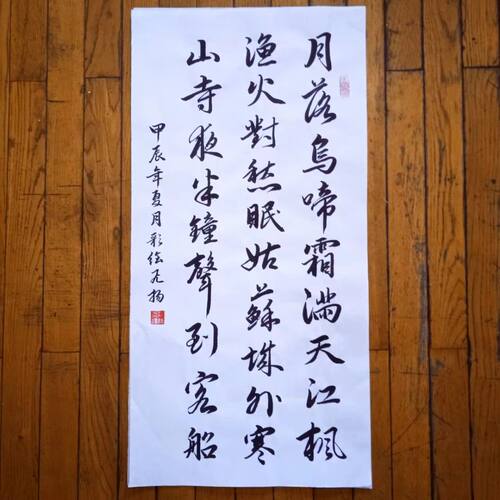 月落烏啼霜滿天江楓
漁火對愁眠姑蘇城外寒
山寺夜半鐘聲到客船
甲辰年夏月彩绘飞扬